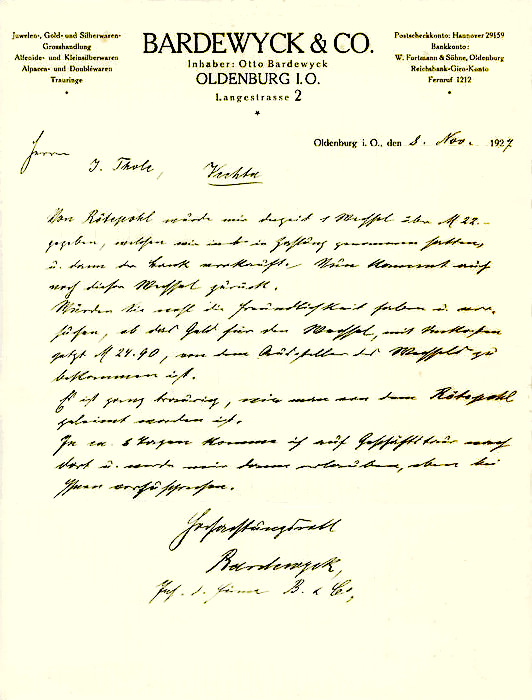 Juwelen-, Gold- und Silberwaren-
Grosshandlung
Alfenide- und Kleinsilberwaren
Alparca- und Doubléwaren
Trauringe
BARDEWYCK & CO.
Inhaber: Otto Bardewyck
OLDENBURG I.O.
Langestrasse 2
Postscheckkonto: Hannover 29159
Bankkonto:
W. Fortmann & Söhne, Oldenburg
Reichsbank-Giro-Konto
Fernruf 1212
Oldenburg i. O., den 8. Nov. 1927
Herrn
J. Thole,
Vechta
Von Rötepohl wurde mir derzeit 1 Wechsel über M 22.-
gegeben, welchen wir in Zahlung genommen hatten,
u. dann der Bank verkauft. Nun kommt auch
noch dieser Wechsel zurück.
Würden Sie wohl die Freundlichkeit haben u. ver-
suchen, ob das Geld für den Wechsel, mit Unkosten
jetzt M 24.90, von dem Aussteller des Wechsels zu
bekommen ist.
Es ist ganz traurig, wie man von dem Rötepohl
geleimt worden ist.
In ca. 6 Tagen komme ich auf Geschäftstour nach
dort u. werde mir dann erlauben, eben bei
Ihnen vorzusprechen.
Hochachtungsvoll
Bardewyck,
Inh. d. Firma B. & Co,